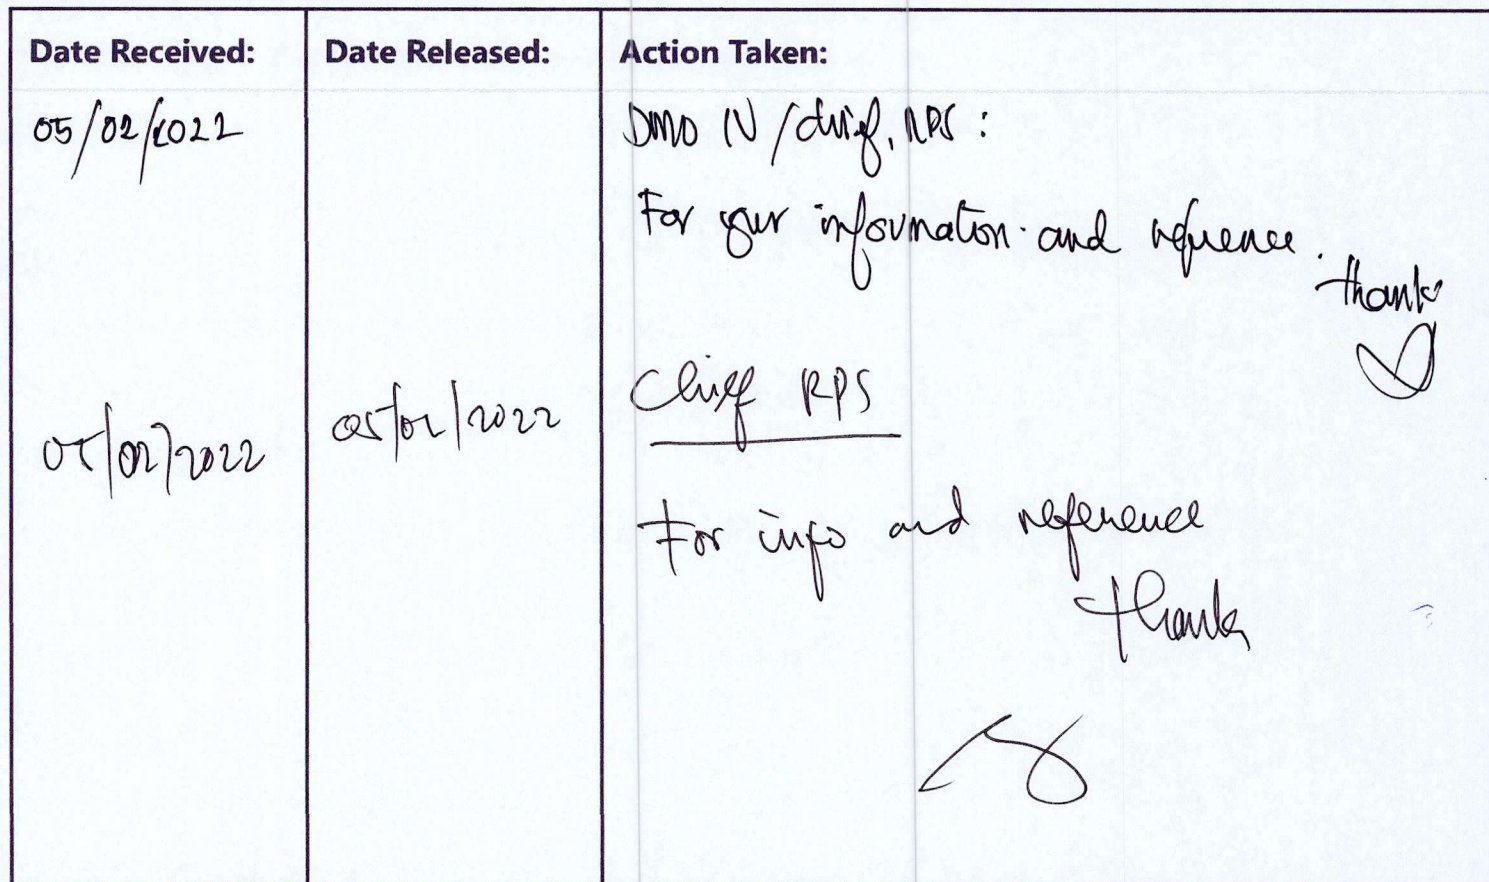 Date Received: Date Released: Action Taken:
05/02/2022 DMO IV/Chief, RPS:
For your information and reference.
Thanks
Chief RPS
05/02/2022 05/02/2022
For info and reference
Thanks